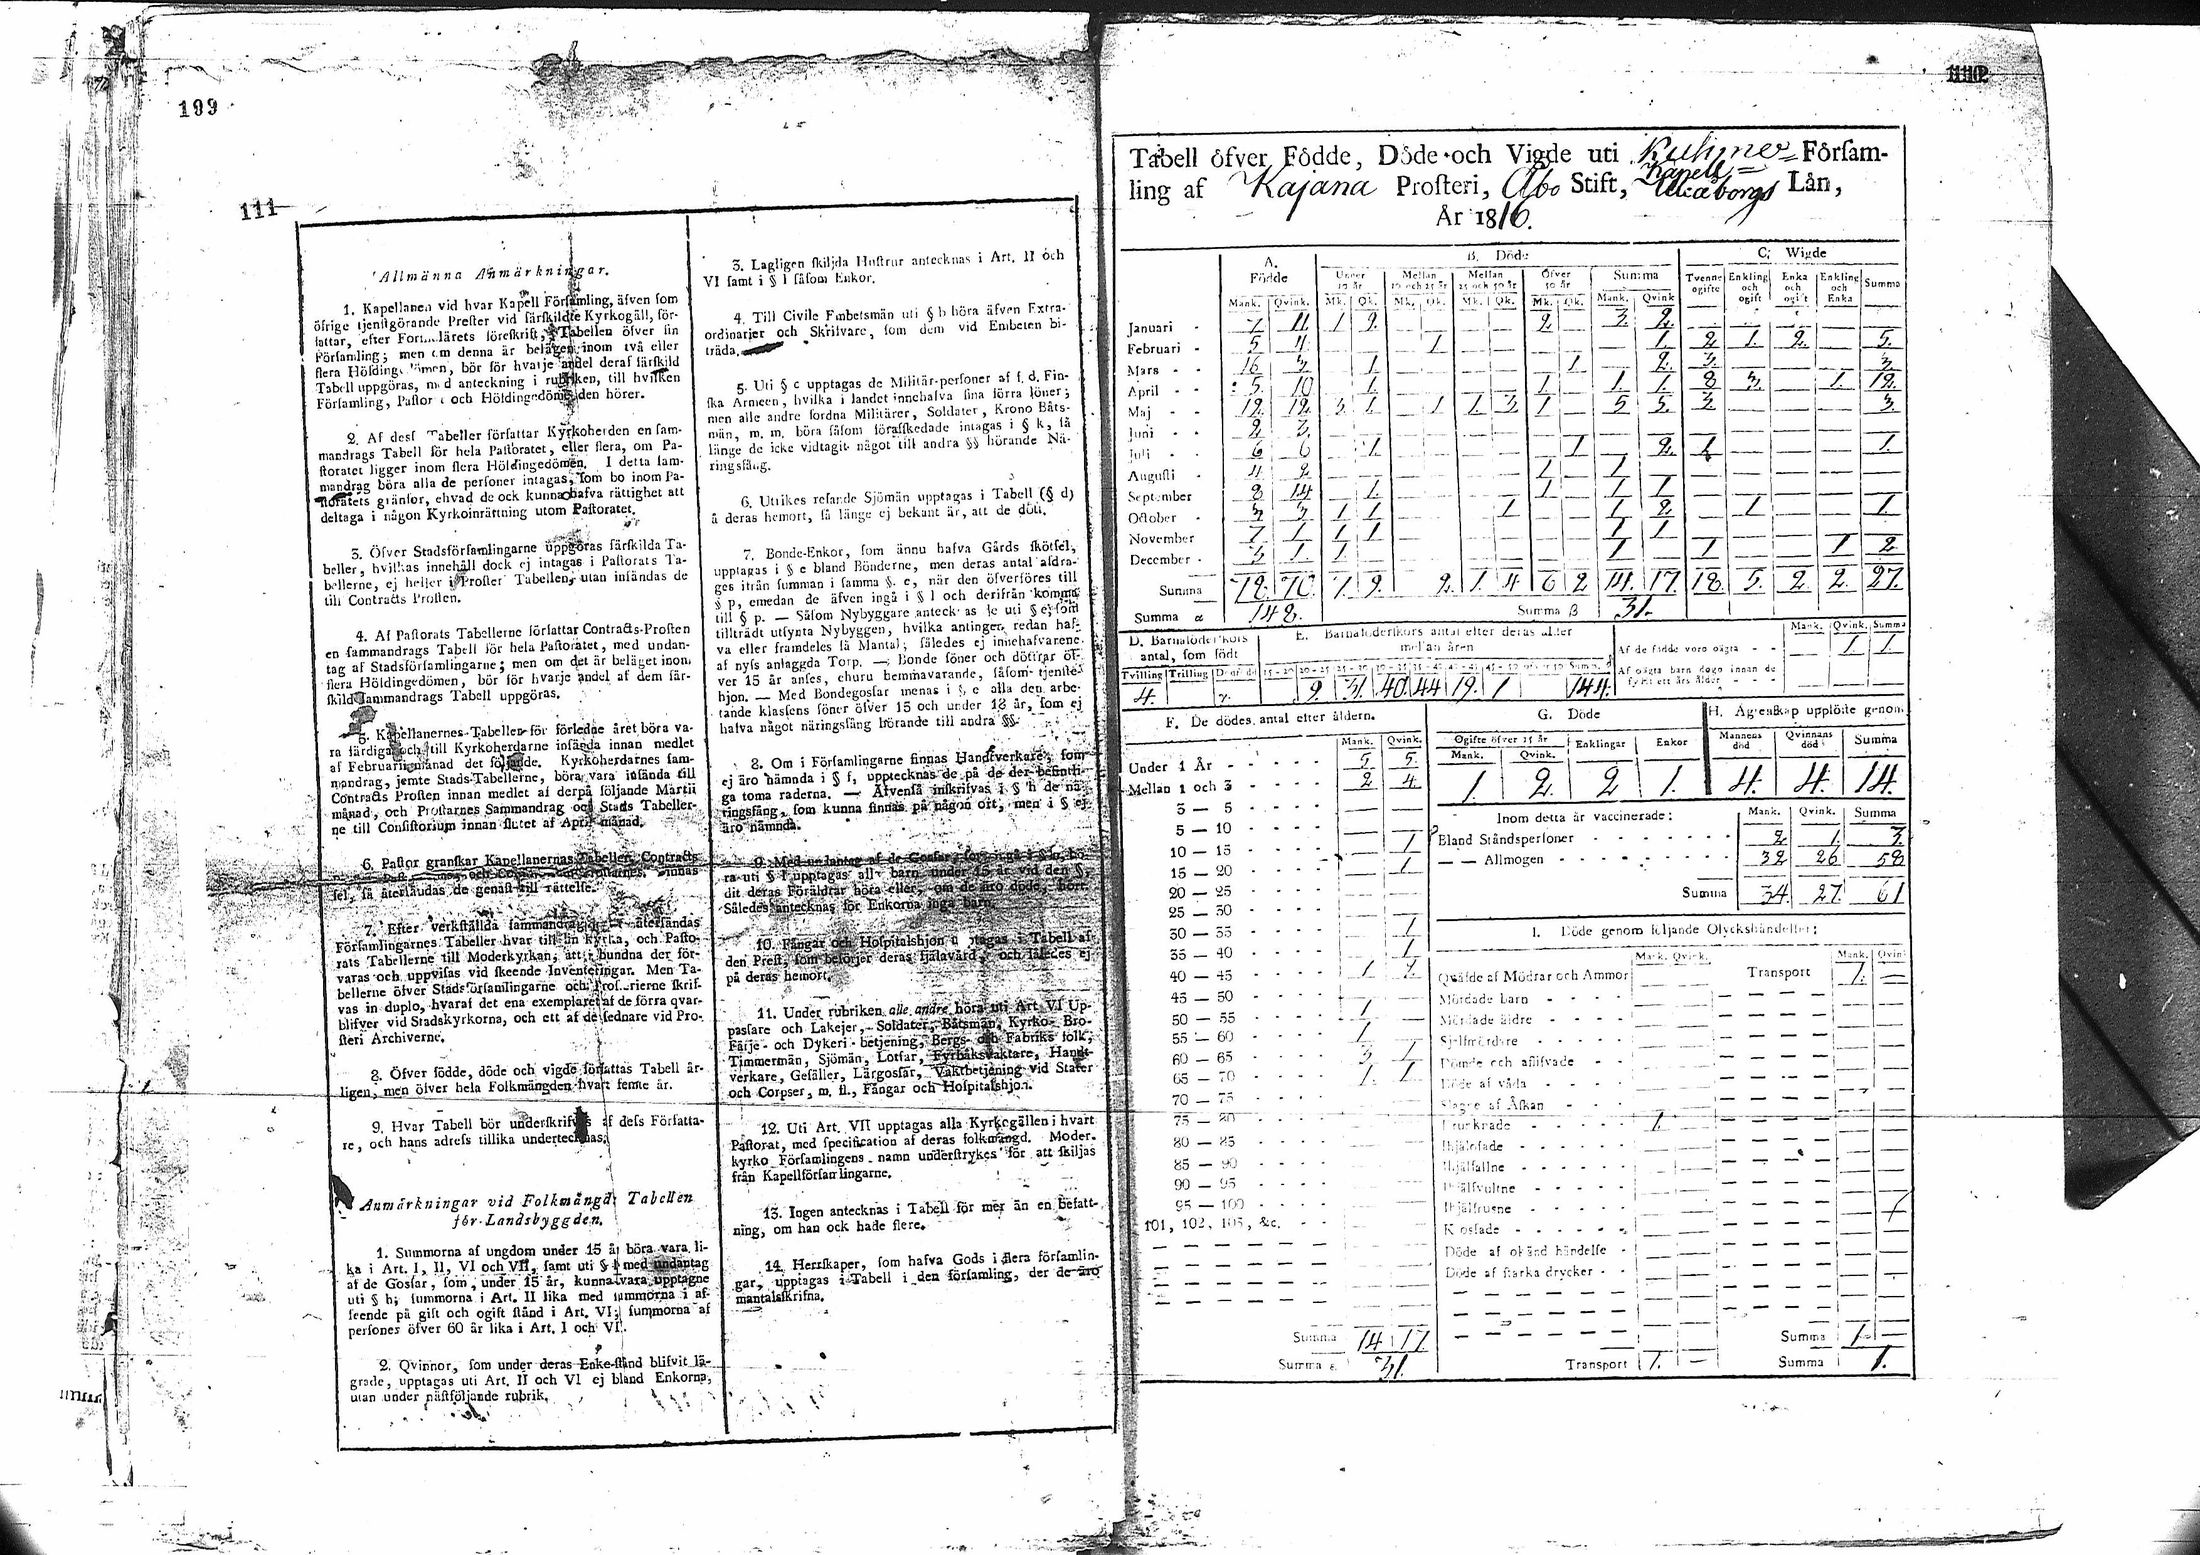 199
111
Allmänna Anmärkningar.
1. Kapellanen vid hvar Kapell Församling, äfven som
öfrige tjenstgörande Prester vid särskildte Kyrkogäll, för-
fattar, efter föreskrift, Tabellen öfver sin
Församling; men om denna är belägen inom två eller
flera Höfdinge bör för hvarje andel deraf särskild
Tabell uppgöras, med anteckning i rubriken, till hvilken
Församling, Pastorat och Höfdingedöme den hörer.
2. Af dess Tabeller författar Kyrkoherden en sam-
mandrags Tabell för hela Pastoratet, eller flera, om Pa-
storatet ligger inom flera Höfdingedömen. I detta sam-
mandrag böra alla de personer intagas, som bo inom Pa-
storatets gränsor, ehvad de ock kunna hafva rättighet att
deltaga i någon Kyrkoinrättning utom Pastoratet.
3. Öfver Stadsförsamlingarne uppgöras särskilda Ta-
beller, hvilkas innehåll dock ej intagas i Pastorats Ta-
bellerne, ej heller i Prosteri Tabellen, utan insändas de
till Contracts Prosten.
4. Af Pastorats Tabellerne författar Contracts-Prosten
en sammandrags Tabell för hela Pastoratet, med undan-
tag af Stadsförsamlingarne; men om det är beläget inom
flera Höfdingedömen, bör för hvarje andel af dem sär-
skild sammandrags Tabell uppgöras.
5. Kapellanernes Tabeller för förledne året böra va-
ra färdiga och till Kyrkoherdarne insända innan medlet
af Februarii månad det följande. Kyrkoherdarnes sam-
mandrag, jemte Stads-Tabellerne, böra vara insända till
Contracts Prosten innan medlet af derpå följande Martii
månad, och Prostarnes Sammandrag och Stads Tabeller-
ne till Consistorium innan slutet af April månad.
6. Pastor granskar Kapellanernas Tabeller, Contracts
fel, så återsändas de genast till rättelse.
7. Efter verkställda sammandrag återsändas
Församlingarnes Tabeller hvar till sin Kyrka, och Pasto-
rats Tabellerne till Moderkyrkan, att bundna der för-
varas och uppvisas vid skeende Inventeringar. Men Ta-
bellerne öfver Stadsförsamlingarne och Prosterierne skrif-
vas in duplo, hvaraf det ena exemplaret af de förra qvar-
blifver vid Stadskyrkorna, och ett af de sednare vid Pro-
steri Archiverne.
8. Öfver födde, döde och vigde författas Tabell år-
ligen, men öfver hela Folkmängden hvart femte år.
9. Hvar Tabell bör underskrifvas af dess Författa-
re, och hans adress tillika undertecknas.
Anmärkningar vid Folkmängds Tabellen
för Landsbyggden.
1. Summorna af ungdom under 15 år böra vara li-
ka i Art. I, II, VI och VII, samt uti § l med undantag
af de Gossar, som, under 15 år, kunna vara upptagne
uti § h; summorna i Art. II lika med summorna i af-
seende på gift och ogift stånd i Art. VI; summorna af
personer öfver 60 år lika i Art. I och VI.
2. Qvinnor, som under deras Enke-stånd blifvit lä-
grade, upptagas uti Art. II och VI ej bland Enkorna,
utan under nästföljande rubrik.
3. Lagligen skiljda Hustrur antecknas i Art. II och
VI samt i § l såsom Enkor.
4. Till Civile Embetsmän uti § b höra äfven Extra-
ordinarier och Skrifvare, som dem vid Embeten bi-
träda.
5. Uti § c upptagas de Militär-personer af f. d. Fin-
ska Armeen, hvilka i landet innehafva sina förra löner;
men alle andre fordna Militärer, Soldater, Krono Båts-
män, m. m. böra såsom förafskedade intagas i § k, så
länge de icke vidtagit något till andra §§ hörande Nä-
ringsfång.
6. Utrikes resande Sjömän upptagas i Tabell (§ d)
å deras hemort, så länge ej bekant är, att de dött.
7. Bonde-Enkor, som ännu hafva Gårds skötsel,
upptagas i § e bland Bönderne, men deras antal afdra-
ges ifrån summan i samma §. e, när den öfverföres till
§ p, emedan de äfven ingå i § l och derifrån komma
till § p. — Såsom Nybyggare antecknas de uti § e, som
tillträdt utsynta Nybyggen, hvilka antingen redan haf-
va eller framdeles få Mantal; således ej innehafvarene
af nyss anlaggda Torp. — Bonde söner och döttrar öf-
ver 15 år anses, ehuru hemmavarande, såsom tjenste-
hjon. — Med Bondegossar menas i §. e alla den arbe-
tande klassens söner öfver 15 och under 18 år, som ej
hafva något näringsfång hörande till andra §§.
8. Om i Församlingarne finnas Handtverkare, som
ej äro nämnda i § f, upptecknas de på de der befintli-
ga toma raderna. — Äfvenså inskrifvas i § h de nä-
ringsfång, som kunna finnas på någon ort, men i § ej
äro nämnda.
9. Med undantag af de Gossar, som ingå i § h, bö-
ra uti § l upptagas alla barn under 15 år vid den §,
dit deras Föräldrar höra eller, om de äro döde, hört.
Således antecknas för Enkorna inga barn.
10. Fångar och Hospitalshjon upptagas i Tabell af
den Prest, som besörjer deras själavård, och således ej
på deras hemort.
11. Under rubriken alle andre höra uti Art. VI Up-
passare och Lakejer, Soldater, Båtsmän, Kyrko- Bro-
Färje- och Dykeri-betjening, Bergs- och Fabriks folk,
Timmermän, Sjömän, Lotsar, Fyrbåksvaktare, Handt-
verkare, Gesäller, Lärgossar, Vaktbetjening vid Stater
och Corpser, m. fl., Fångar och Hospitalshjon.
12. Uti Art. VII upptagas alla Kyrkogällen i hvart
Pastorat, med specification af deras folkmängd. Moder-
kyrko Församlingens namn understrykes för att skiljas
från Kapellförsamlingarne.
13. Ingen antecknas i Tabell för mer än en befatt-
ning, om han ock hade flere.
14. Herrskaper, som hafva Gods i flera församlin-
gar, upptagas i Tabell i den församling, der de äro
mantalsskrifna.
Tabell öfver Födde, Döde och Vigde uti Kuhmo Försam-
Kapell
ling af Kajana Prosteri, Åbo Stift, Uleåborgs Län,
År 1816.
A. Födde B. Döde C. Wigde
Under 10 år Mellan 10 och 25 år Mellan 25 och 50 år Öfver 50 år Summa Tvenne ogifte Enkling och ogift Enka och ogift Enkling och Enka Summa
Mank. Qvink. Mk. Qk. Mk. Qk. Mk. Qk. Mk. Qk. Mank. Qvink
Januari 7 11 1 2 2 3 2
Februari 5 4 1 1 2 1 2 5
Mars 16 3 1 1 2 3 3
April 5 10 1 1 1 1 8 3 1 12
Maj 12 12 3 1 1 1 3 1 5 5 3 3
Juni 2 3
Juli 6 6 1 1 2 1 1
Augusti 4 2 1 1
September 8 14 1 1 1 1
October 3 3 1 1 1 1 2 1 1
November 7 1 1 1 1 1
December 3 1 1 1 1 1 2
Summa 78. 70. 7. 9. 2. 1. 4 6 2 14. 17. 18. 5. 2. 2. 27.
Summa α 148. Summa β 31.
D. Barnaföderskors antal, som födt E. Barnaföderskors antal efter deras ålder mellan åren Mank. Qvink. Summa
Af de födde voro oägta - - 1 1.
Af oägta barn dogo innan de fyllt ett års ålder
Tvilling Trilling
4. 9 31. 40. 44 19. 1 144.
F. De dödes antal efter åldern.
Mank. Qvink.
Under 1 År 5 5.
Mellan 1 och 3 2 4.
3 — 5
5 — 10
10 — 15 1
15 — 20 1
20 — 25
25 — 30
30 — 35 1
35 — 40 1
40 — 45 1
45 — 50
50 — 55 1
55 — 60 1.
60 — 65 3 1
65 — 70 1. 1
70 — 75
75 — 80
80 — 85
85 — 90
90 — 95
95 — 100
101, 102, 103, &c.
Summa 14 17.
Summa 31.
G. Döde
Ogifte öfver 15 år Enklingar Enkor
Mank. Qvink.
1. 2. 2 1.
H. Ägtenskap upplöste genom
Mannens död Qvinnans död Summa
4. 4.
Inom detta år vaccinerade: Mank. Qvink. Summa
Bland Ståndspersoner 2 1. 3.
— — Allmogen 32 26 58
Summa 34. 27. 61
I. Döde genom följande Olyckshändelser:
Mank. Qvink. Mank. Qvink
Qväfde af Mödrar och Ammor Transport 1. —
Mördade barn
Mördade äldre
Sjelfmördare
Dömde och aflifvade
Döde af våda
Slagne af Åskan
Drunknade 1.
Ihjälfallne
Ihjälfrusne
Döde af okänd händelse
Döde af starka drycker
Summa 1. —
Transport 1. — Summa 1.